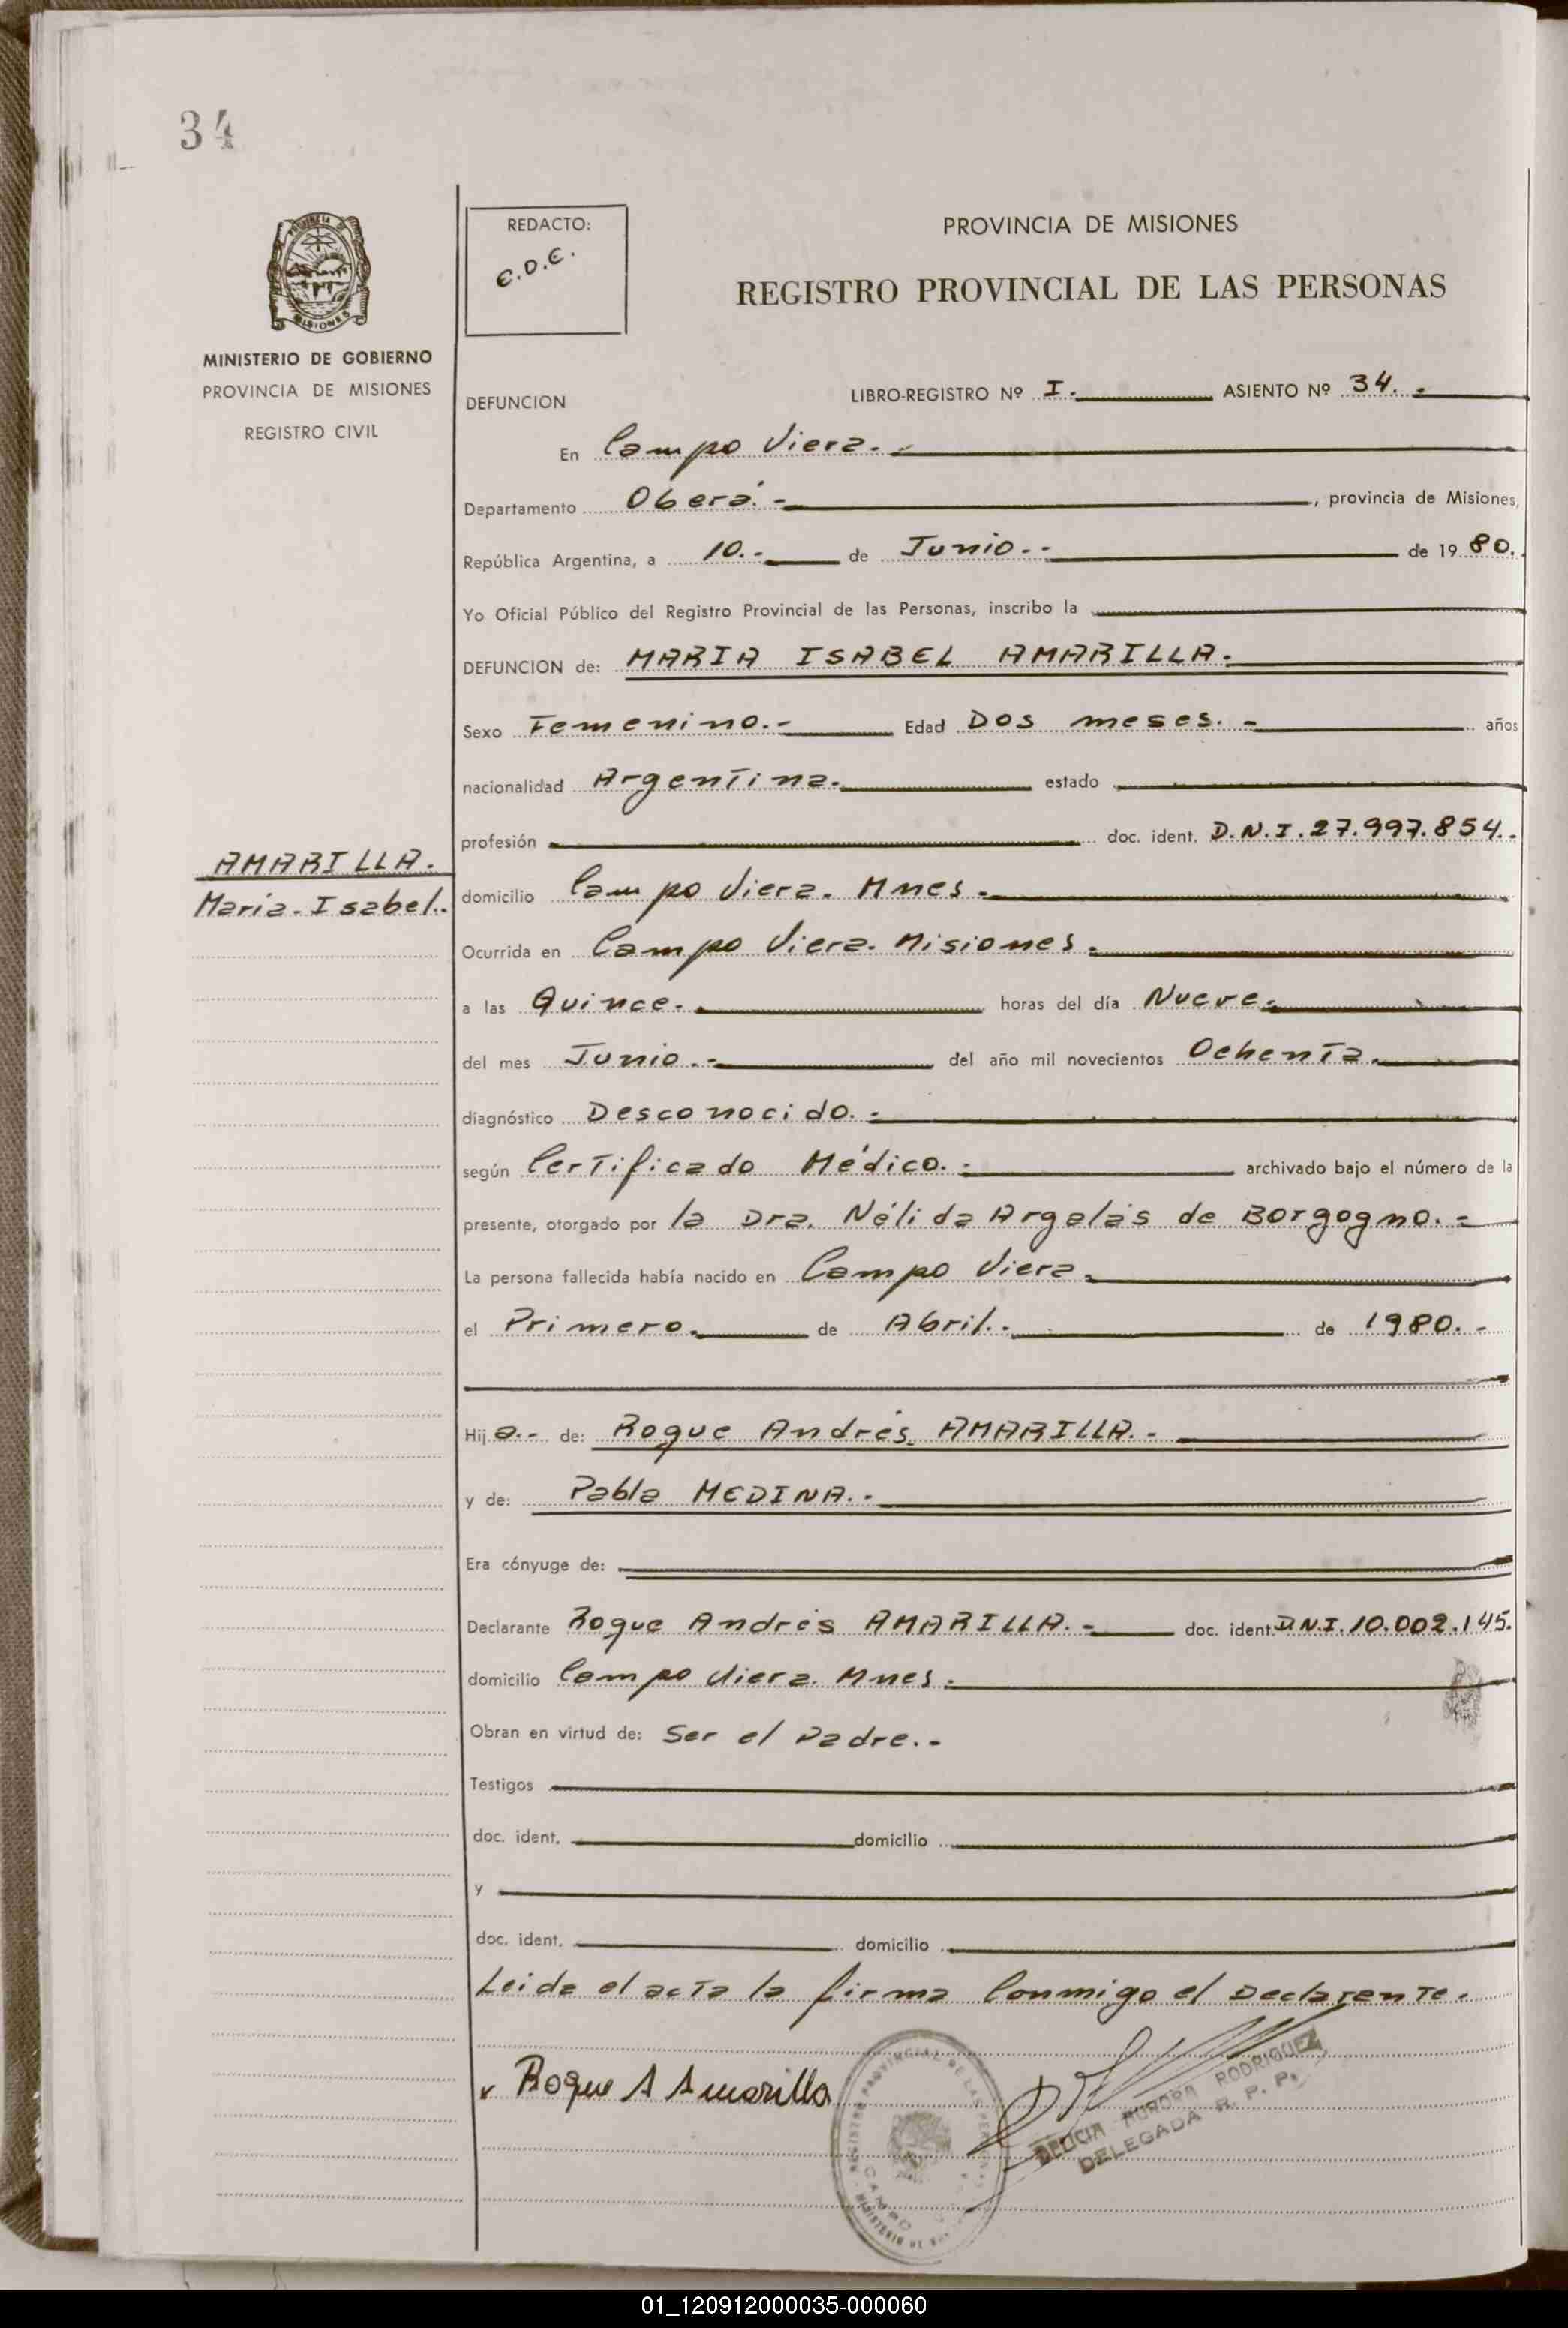 34
REDACTO:
E.D.E.
PROVINCIA DE MISIONES
REGISTRO PROVINCIAL DE LAS PERSONAS
MINISTERIO DE GOBIERNO
PROVINCIA DE MISIONES
REGISTRO CIVIL
DEFUNCION LIBRO-REGISTRO Nº I.- ASIENTO Nº 34.-
En Campo Viera.-
Departamento Oberá.- , provincia de Misiones,
República Argentina, a 10.- de Junio.- de 1980.
Yo Oficial Público del Registro Provincial de las Personas, inscribo la
DEFUNCION de: MARIA ISABEL AMARILLA.-
Sexo Femenino.- Edad Dos meses.- años
nacionalidad Argentina.- estado
profesión doc. ident. D.N.I.27.997.854.-
AMARILLA.
Maria-Isabel.
domicilio Campo Viera. Mnes.-
Ocurrida en Campo Viera. Misiones.-
a las Quince.- horas del día Nueve.-
del mes Junio.- del año mil novecientos Ochenta.-
diagnóstico Desconocido.-
según Certificado Médico.- archivado bajo el número de la
presente, otorgado por la Dra. Nélida Argelás de Borgogno.-
La persona fallecida había nacido en Campo Viera.-
el Primero.- de Abril.- de 1980.-
Hija.- de: Roque Andrés AMARILLA.-
y de: Pabla MEDINA.-
Era cónyuge de:
Declarante Roque Andrés AMARILLA.- doc. ident. D.N.I.10.002.145.
domicilio Campo Viera. Mnes.-
Obran en virtud de: Ser el Padre.-
Testigos
doc. ident. domicilio
y
doc. ident. domicilio
Leida el acta la firma Conmigo el Declarante.
Roque A Amarilla
REGISTRO PROVINCIAL DE LAS
CAMPO
MINISTERIO DE
AURORA RODRIGUEZ
DELEGADA R. P. P.
01_120912000035-000060